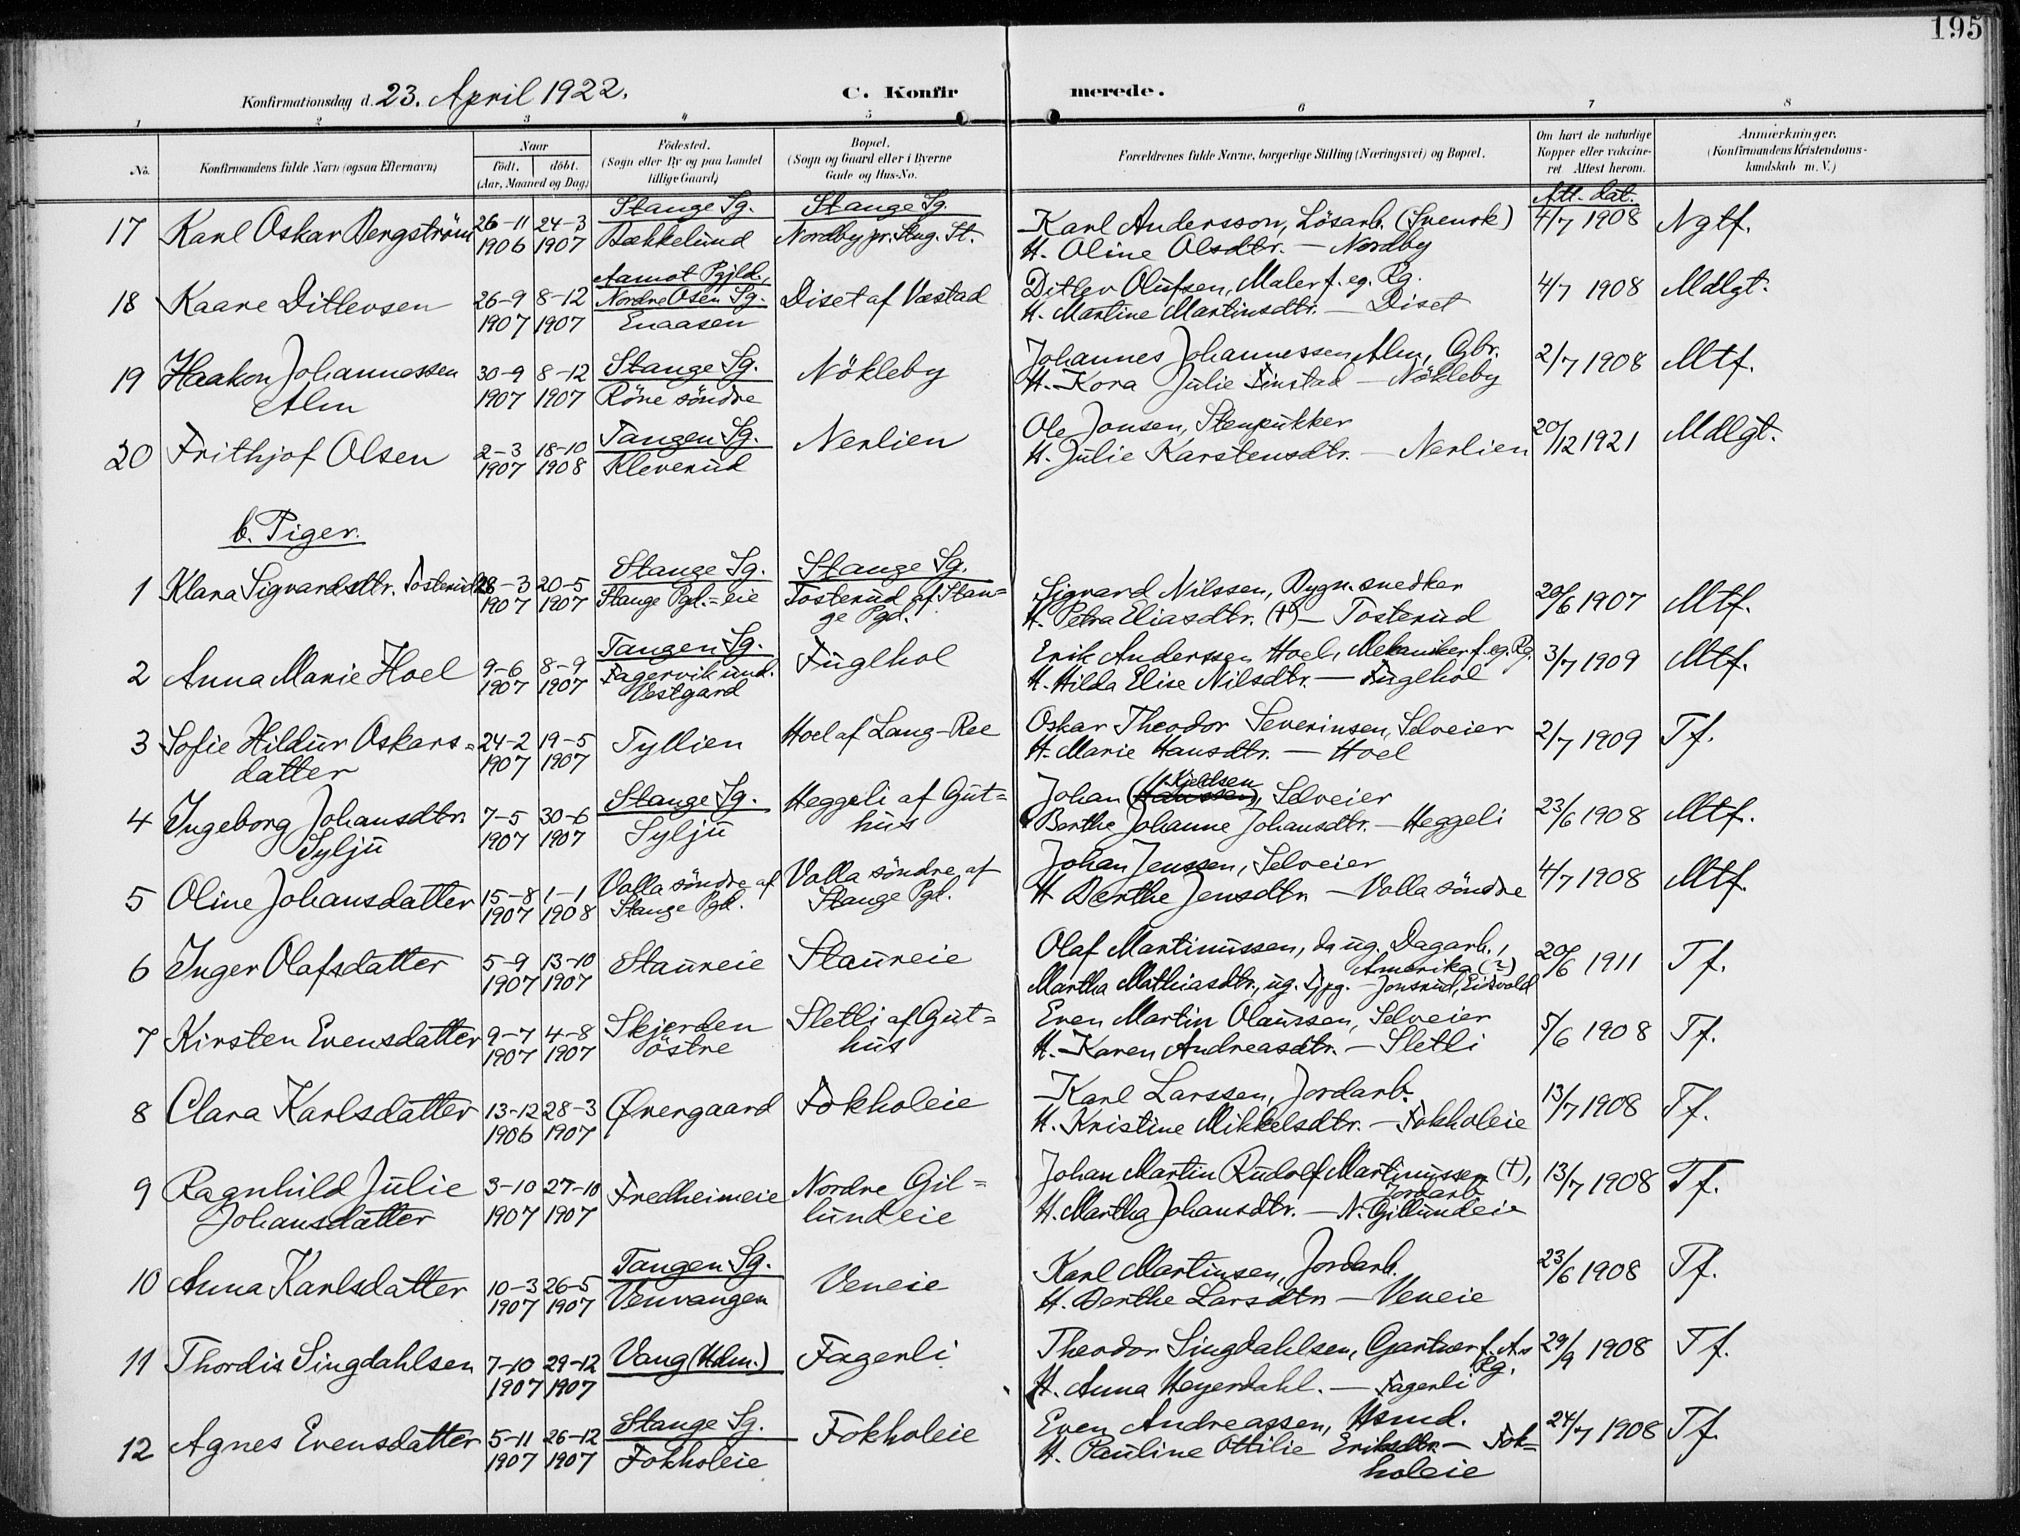 195
Konfirmationsdag d. 23. April 1922. C. Konfir merede.
1 2 3 4 5 6 7 8
No. Konfirmandens fulde Navn (ogsaa Efternavn) Naar Født. døbt. (Aar, Maaned og Dag) Fødested. (Sogn eller By og paa Landet tillige Gaard) Bopæl. (Sogn og Gaard eller i Byerne Gade og Hus-No. Forældrenes fulde Navne, borgerlige Stilling (Næringsvei) og Bopæl. Om havt de naturlige Kopper eller vakcineret. Attest herom. Anmærkninger. (Konfirmandens Kristendomskundskab m. V.)
Stange Sg. Stange Sg. Att. dat.
17 Karl Oskar Bergström 26-11 24-3 Bækkelund Nordby pr. Stng. St. Karl Andersson, Lösarb. (Svensk) 4/7 1908 Ngtf.
1906 1907 H. Oline Olsdtr. — Nordby
Aamot Pgjld.,
18 Kaare Ditlevsen 26-9 8-12 Nordre Osen Sg. Diset af Væstad Ditlev Olufsen, Maler f. eg. Rg. 4/7 1908 Mdlgt.
1907 1907 Enaasen H. Martine Martinsdtr. — Diset
19 Haakon Johannessen 30-9 8-12 Stange Sg. Nökleby Johannes Johannessen Alm, Gbr. 2/7 1908 Mtf.
Alm 1907 1907 Röne söndre H. Kora Julie Finstad — Nökleby
20 Frithjof Olsen 2-3 18-10 Tangen Sg. Nerlien Ole Jonsen, Stenpukker 20/12 1921 Mdlgt.
1907 1908 Kleverud H. Julie Karstensdtr. — Nerlien
b. Piger.
Stange Sg. Stange Sg.
1 Klara Sigvardsdtr. Tosterud 28-3 20-5 Stange Pgd.=eie Tosterud af Stan= Sigvard Nilssen, Bygn. snedker 20/6 1907 Mtf.
1907 1907 ge Pgd. H. Petra Eliasdtr. (†) — Tosterud
Tangen Sg.
2 Anna Marie Hoel 9-6 8-9 Fagervik und. Fuglhol Erik Anderssen Hoel, Mekaniker f. eg. Rg. 3/7 1909 Mtf.
1907 1907 Vestgard H. Hilda Elise Nilsdtr. — Fuglhol
3 Sofie Hildur Oskars= 24-2 19-5 Tyllien Hoel af Lang-Ree Oskar Theodor Severinsen, Selveier 2/7 1909 Tf.
datter 1907 1907 H. Marie Hansdtr. — Hoel
Stange Sg.
4 Ingeborg Johansdtr. 7-5 30-6 Sylju Heggeli af Gut= Johan (Hanssen) Kjeldsen, Selveier 23/6 1908 Mtf.
Sylju 1907 1907 hus Berthe Johanne Johansdtr. — Heggeli
5 Oline Johansdatter 15-8 1-1 Valla söndre af Valla söndre af Johan Jenssen, Selveier 4/7 1908 Mtf.
1907 1908 Stange Pgd. Stange Pgd. H Berthe Jensdtr. — Valla söndre
6 Inger Olafsdatter 5-9 13-10 Staureie Staureie Olaf Martinussen, da ug. Dagarb., Amerika (?) 20/6 1911 Tf.
1907 1907 Martha Mathiasdtr., ug. Tjpg. — Jonsrud, Eidsvold
7 Kirsten Evensdatter 9-7 4-8 Skjerden Sletli af Gut= Even Martin Olaussen, Selveier 5/6 1908 Tf.
1907 1907 östre hus H. Karen Andreasdtr. — Sletli
8 Clara Karlsdatter 13-12 28-3 Øvergaard Fokholeie Karl Larssen, Jordarb. 13/7 1908 Tf.
1906 1907 H. Kristine Mikkelsdtr. — Fokholeie
9 Ragnhild Julie 3-10 27-10 Fredheimeie Nordre Gil= Johan Martin Rudolf Martinussen (†), Jordarb. 13/7 1908 Tf.
Johansdatter 1907 1907 lundeie H. Martha Johansdtr. — N. Gillundeie
Tangen Sg.
10 Anna Karlsdatter 10-3 26-5 Venvangen Veneie Karl Martinsen, Jordarb. 23/6 1908 Tf.
1907 1907 H. Berthe Larsdtr. — Veneie
11 Thordis Singdahlsen 7-10 29-12 Vang (Hdm.) Fagerli Theodor Singdahlsen, Gartner f. A.s Rg. 29/9 1908 Tf.
1907 1907 H. Anna Heyerdahl. — Fagerli
Stange Sg.
12 Agnes Evensdatter 5-11 26-12 Fokholeie Fokholeie Even Andreassen, Hsmd. 24/7 1908 Tf.
1907 1907 H. Pauline Ottilie Eriksdtr. — Fok=
holeie